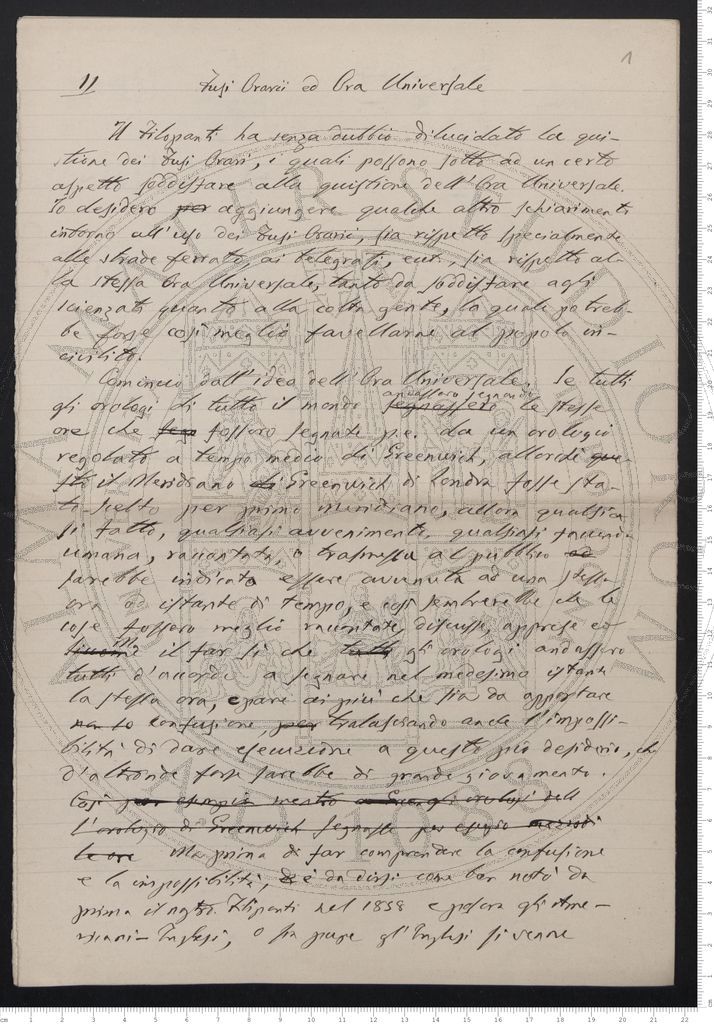 1
11 Fusi Orarii ed Ora Universale
Il Filopanti ha senza dubbio dilucidato la qui-
stione dei Fusi Orari, i quali possono sotto ad un certo
aspetto soddisfare alla quistione dell'Ora Universale.
Io desidero per aggiungere qualche altro schiarimento
intorno all'uso dei Fusi Orarii, sia rispetto specialmente
alle strade ferrate, ai telegrafi, ecc., sia rispetto al-
la stessa Ora Universale, tanto da soddisfare agli
scienziati quanto alla colta gente, la quale potreb-
be forse così meglio favellarne al popolo in-
civilito.
Comincio dall'idea dell'Ora Universale. Se tutti
andassero segnando
gli orologi di tutto il mondo segnassero le stesse
ore che fossero segnate p.e. da un orologio
regolato a tempo medio di Greenwich, allorché que-
sti il Meridiano di Greenwich di Londra fosse sta-
to scelto per primo meridiano, allora qualsia-
si fatto, qualsiasi avvenimento, qualsiasi
umana, raccontata, o trasmessa al pubblico
sarebbe indicata essere avvenuta ad una stessa
ora od istante di tempo, e così sembrerebbe che le
cose fossero meglio raccontate, discusse, apprese ed
il far sì che tutti gli orologi andassero
tutti d'accordo a segnare nel medesimo istante
la stessa ora, epare ai più che sia da apportare
non so confusione, per tralasciando anche l'impossi-
bilità di dare esecuzione a questo pio desiderio, che
d'altronde forse sarebbe di grande giovamento.
Così per esempio mentre a gli orologi dell
L'orologio di Greenwich segnasse per esempio
le ore Ma prima di far comprendere la confusione
e la impossibilità, è da dirsi come ben notò da
prima il nostro Filopanti nel 1858 e poscia gli Ame-
ricani-Inglesi, o sia pure gl'Inglesi si venne